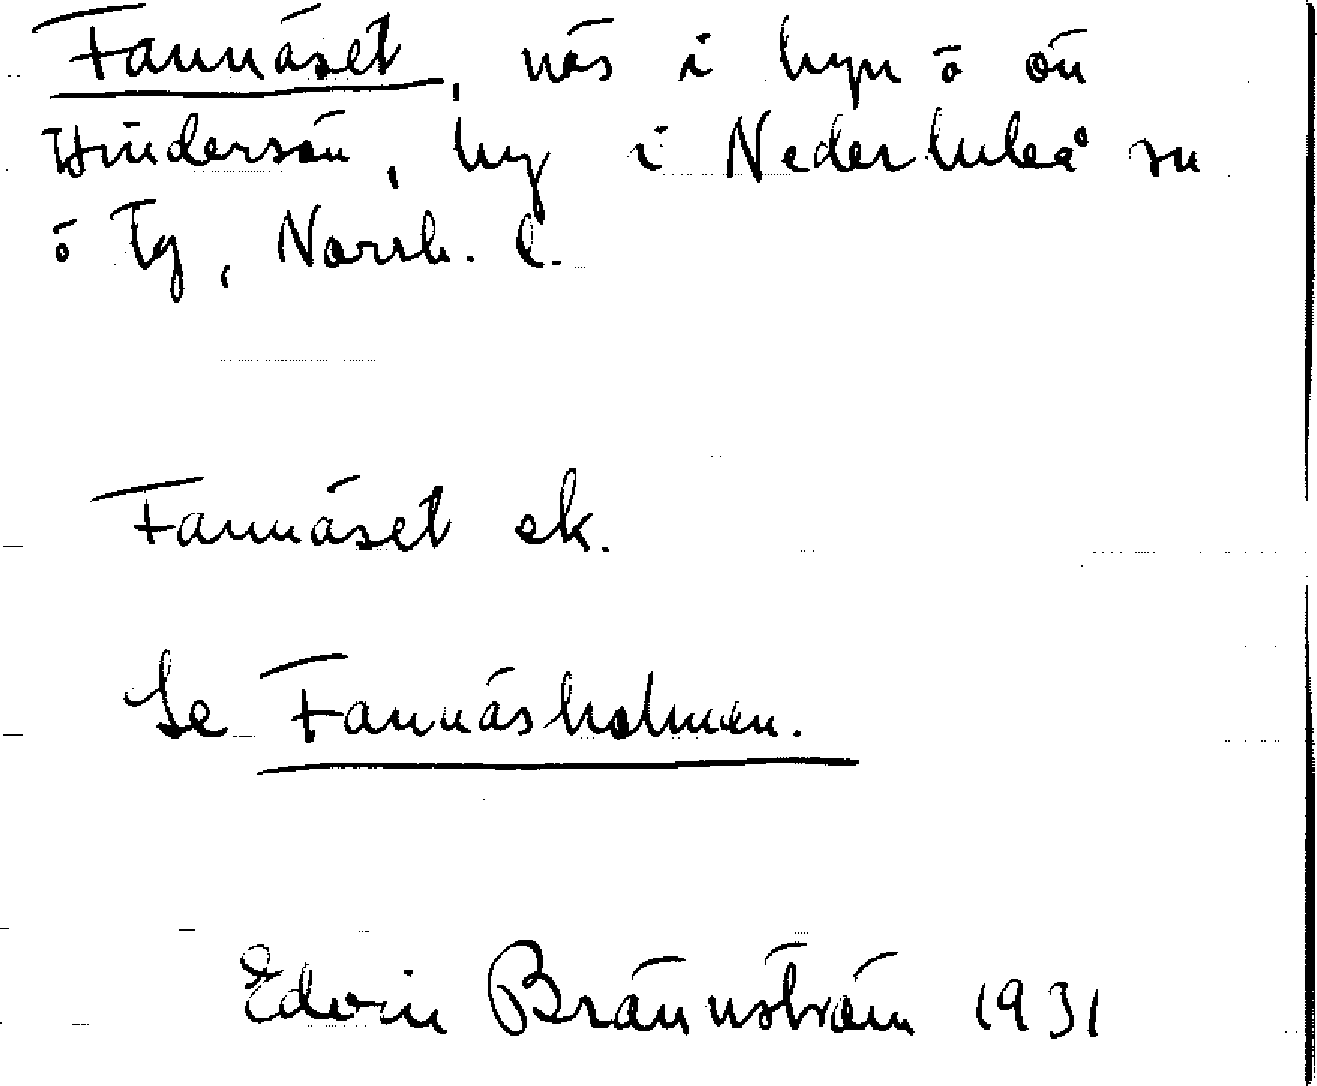 Fannäset, näs i byn o ön
Hindersön, by i Nederluleå sn
o tg, Norrb. l.
Fannäset ek.
Se Fannäsholmen.
Edvin Brännström 1931